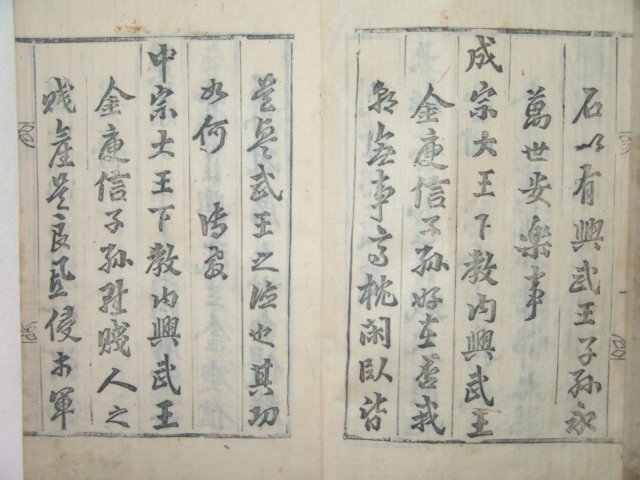 右以有興武王子孫永
萬世安楽事
成宗大王下教內興武王
金庾信子孫好在否我
朝無事高枕閑臥皆
是武王之德也其功
如何 傳
中宗大王下教內興武王
金庾信子孫雖賤人之
賤產是良置侵軍